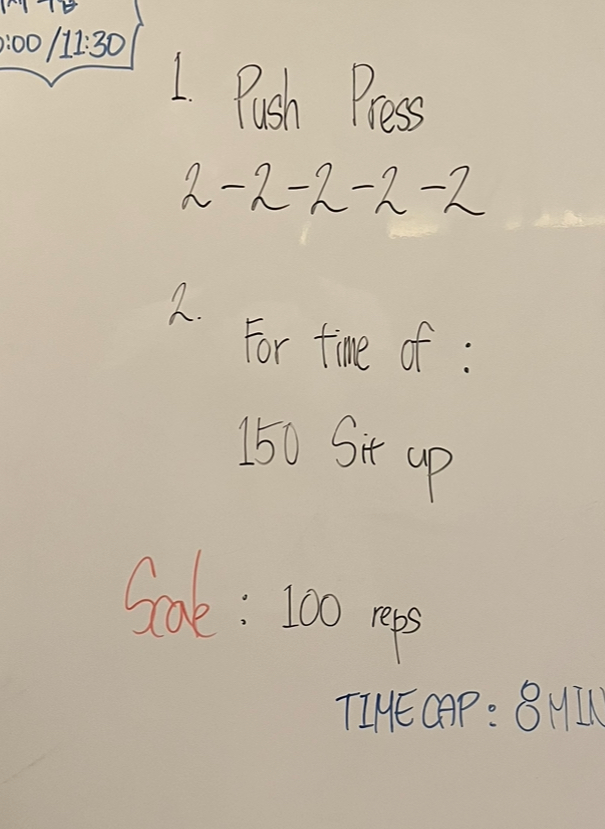 /11:30
1. Push Press
2-2-2-2-2
2.
For time of :
150 Sit up
Scale : 100 reps
TIME CAP : 8 MIN